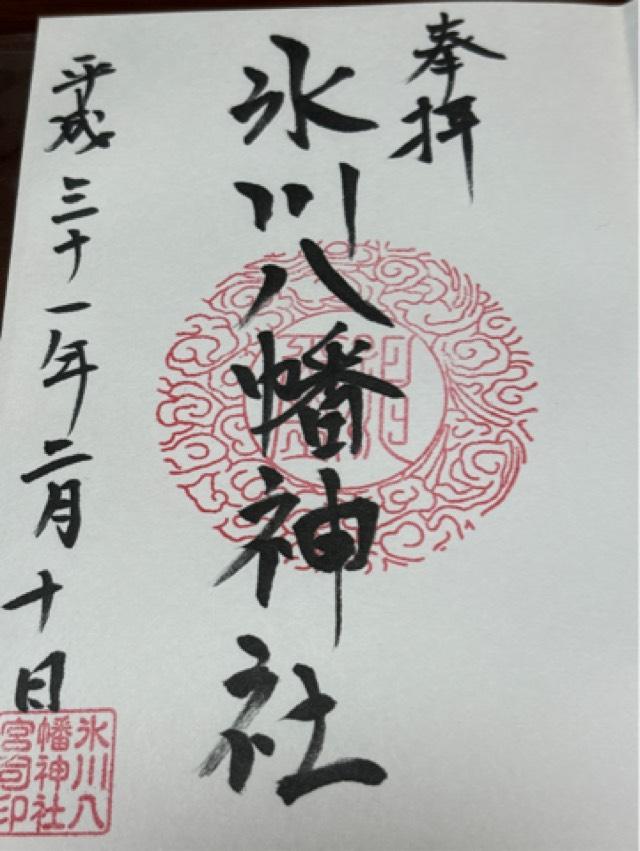 奉拝
氷川八幡神社
平成三十一年二月十日
氷川八
幡神社
宮司印